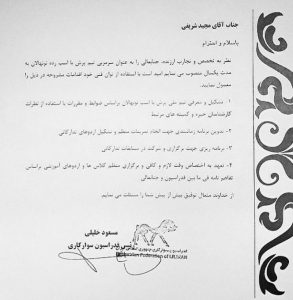 جناب آقای مجید شریفی
باسلام و احترام
نظر به تخصص و تجارب ارزنده، جنابعالی را به عنوان سرمربی تیم پرش با اسب رده نونهالان به
مدت یکسال منصوب می نمایم امید است با استفاده از توان فنی خود اقدامات مشروحه در ذیل را
معمول نمایید.
۱- تشکیل و معرفی تیم ملی پرش با اسب نونهالان براساس ضوابط و مقررات با استفاده از نظرات
کارشناسان خبره و کمیته های مرتبط
۲- تدوین برنامه زمانبندی جهت انجام تمرینات منظم و تشکیل اردوهای تدارکاتی
۳- برنامه ریزی جهت برگزاری و شرکت در مسابقات تدارکاتی
۴- تعهد به اختصاص وقت لازم و کافی و برگزاری منظم کلاس ها و اردوهای آموزشی براساس
تفاهم نامه فی ما بین فدراسیون و جنابعالی
از خداوند متعال توفیق بیش از پیش شما را مسئلت می نمایم.
مسعود خلیلی
رئیس فدراسیون سوارکاری
Equestrian Federation of I.R.IRAN